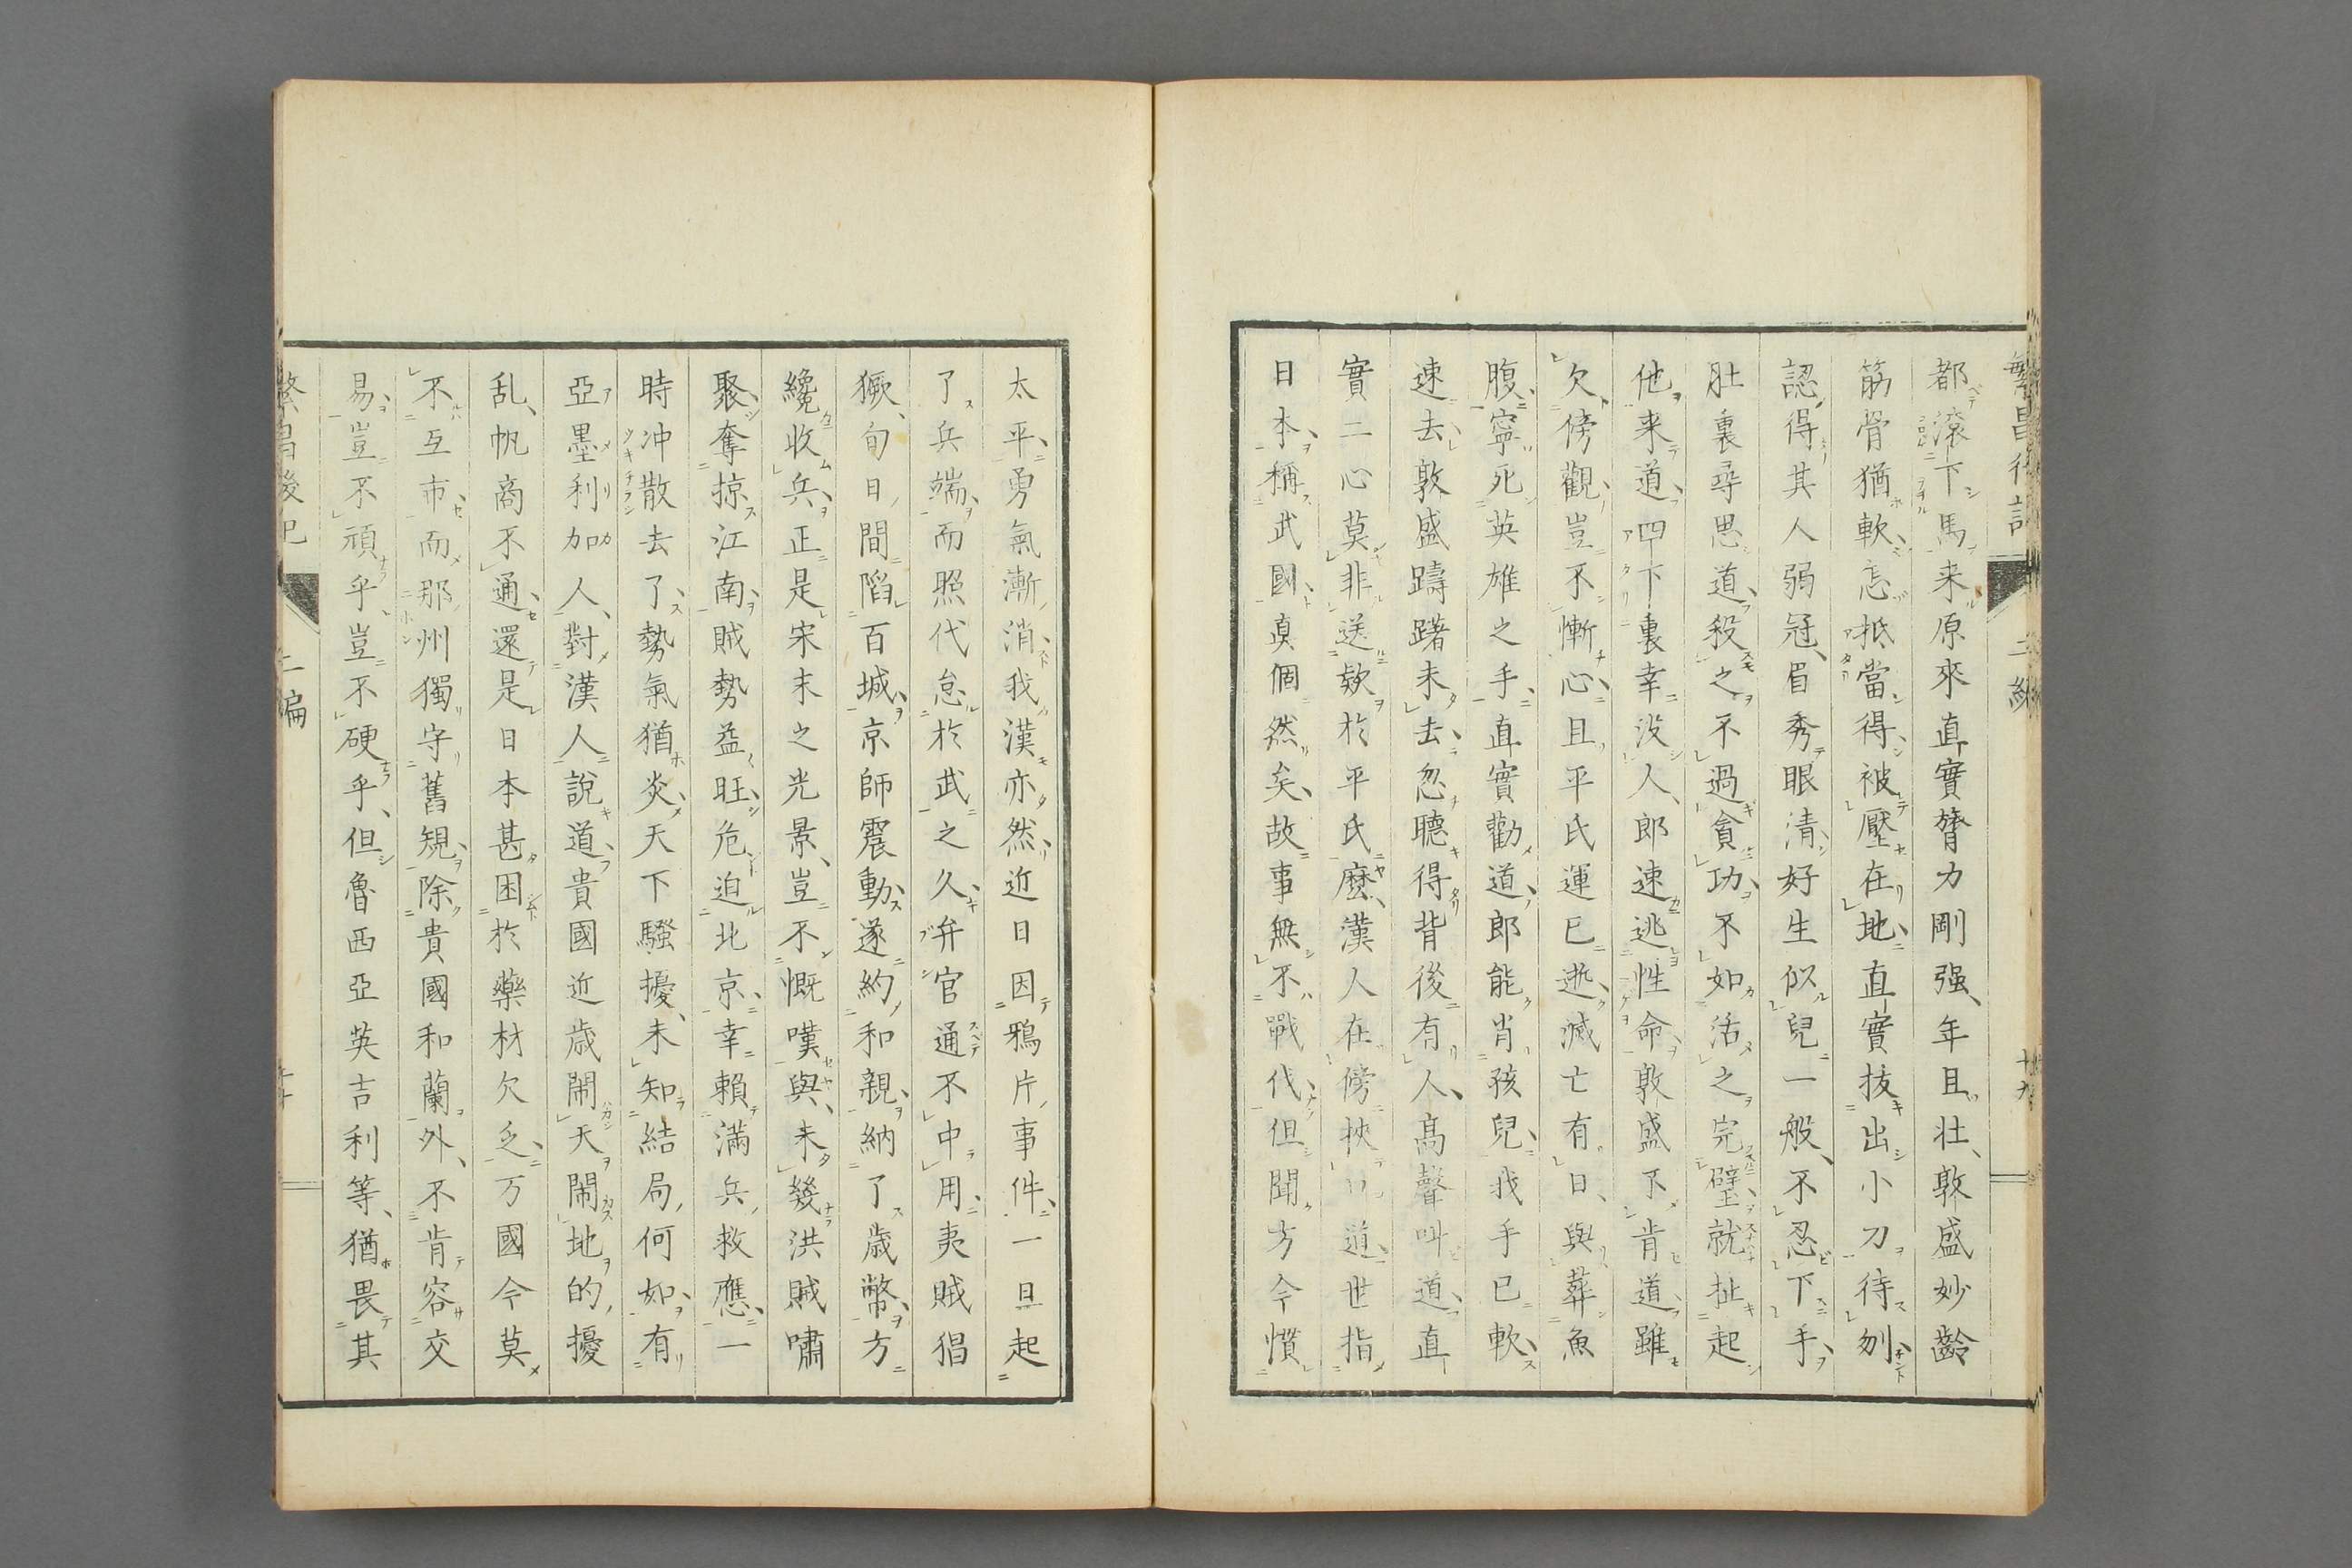 都滾下馬来原來直實膂力剛强、年且壯、敦盛妙齡
筋骨猶軟、怎抵當得、被壓在地、直實拔出小刀待刎、
認得其人弱冠、眉秀眼清、好生似兒一般、不忍下手、
肚裏尋思道、殺之不過貪功、不如活之完璧、就扯起
他来道、四下裏幸没人、郎速逃性命、敦盛不肯道、雖
欠、傍觀、豈不慚心、且平氏運已逝、滅亡有日、與葬魚
腹、寧死英雄之手、直實勸道、郎能肖孩兒、我手已軟、
速去、敦盛躊躇未去、忽聽得背後有人、高聲叫道、直
實二心莫非送欵於平氏麼、漢人在傍挾道、世指
日本、稱武國、真個然矣、故事無不戰代、但聞方今慣
太平、勇氣漸消、我漢亦然、近日因鴉片事件、一旦起
了兵端、而照代怠於武之久、弁官通不中用、夷賊猖
獗、旬日間陷百城、京師震動、遂約和親、納了歳幣、方
纔收兵、正是宋末之光景、豈不慨嘆與、未幾洪賊嘯
聚、奪掠江南、賊勢益旺、危迫北京、幸賴滿兵救應、一
時冲散去了、勢氣猶炎、天下騒擾、未知結局何如、有
亞墨利加人、對漢人説道、貴國近歳閙天閙地的擾
乱、帆商不通、還是日本甚困於藥材欠乏、万國今莫
不互市、而那州獨守舊規、除貴國和蘭外、不肯容交
易、豈不頑乎、豈不硬乎、但魯西亞英吉利等、猶畏其
繁昌後記
二編